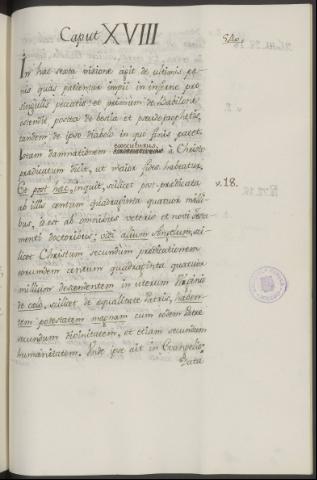 Caput XVIII
In hac sexta visione agit de ultimis pœ-
nis quas patientur impii in inferno pro
singulis peccatis: et primum de Babilone
ostendit, postea de bestia et pseudoprophetis,
tandem de ipso diabolo in quo finis patet.
bram damnationem executurus, a Christo
prædicatum dicit, ut maior fides habeatur.
Et post hac, inquit, scilicet post prædicata
ab illis centum quadraginta quatuor milli-
bus, id est ab omnibus veteris et novi testa-
menti doctoribus; vidi alium Angelum, sci-
licet Christum secundum prædicationem
eorumdem centum quadraginta quatuor
millium descendentem in uterum Virginis
de cœlo, scilicet de equalitate Patris, haben-
tem potestatem magnam cum eodem Patre
secundum divinitatem, et etiam secundum
humanitatem. Unde ipse ait in Evangelio:
Data
v. 18.